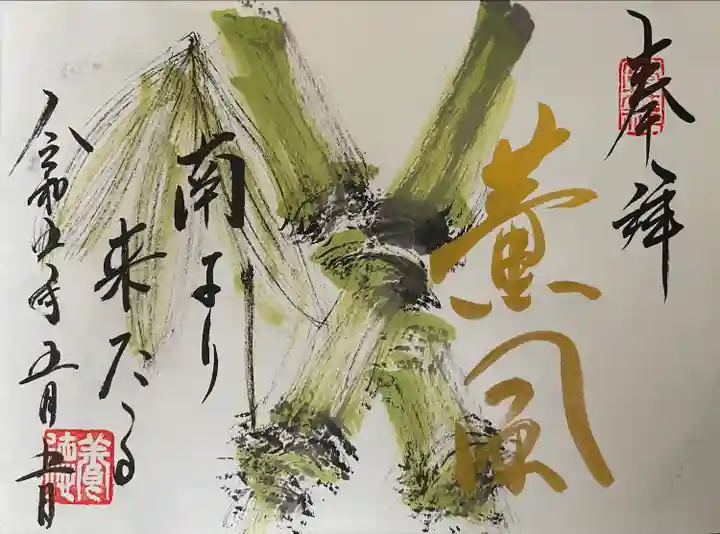 奉拝
薫風
南より
来たる
令和五年五月
養徳